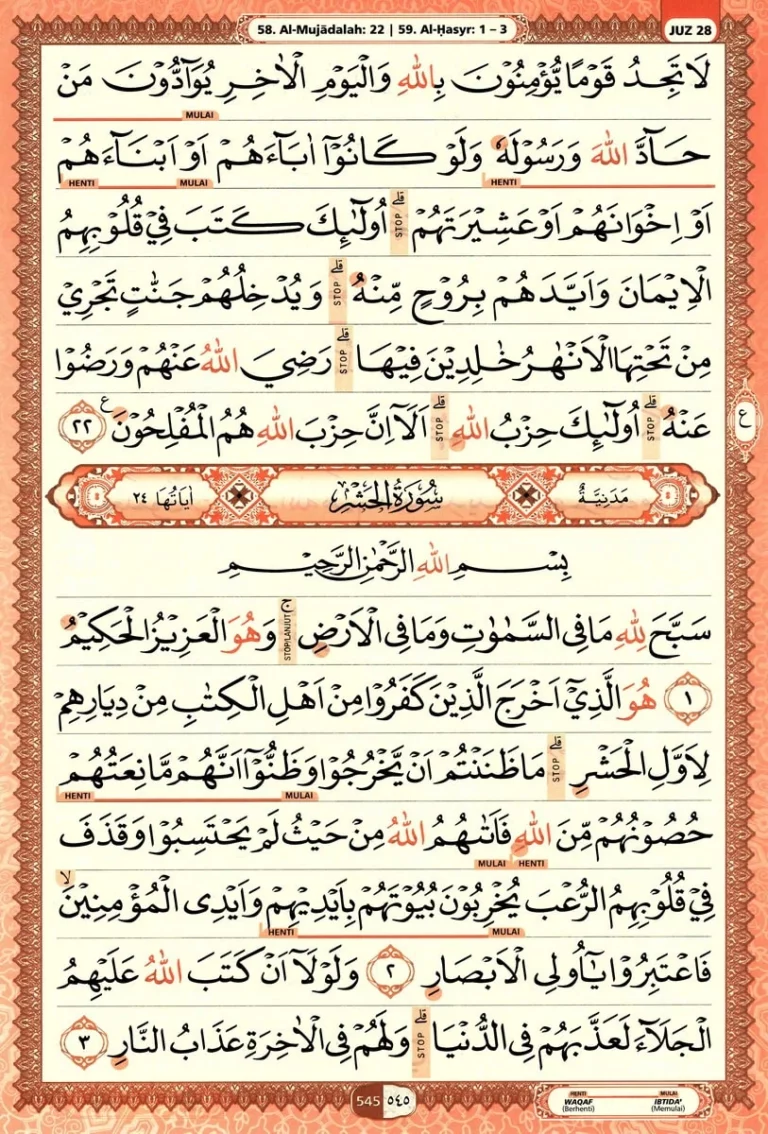 58. Al-Mujādalah: 22 | 59. Al-Ḥasyr: 1 – 3
JUZ 28
لَا تَجِدُ قَوْمًا يُّؤْمِنُوْنَ بِاللّٰهِ وَالْيَوْمِ الْاٰخِرِ يُوَاۤدُّوْنَ مَنْ
MULAI
حَاۤدَّ اللّٰهَ وَرَسُوْلَهٗ وَلَوْ كَانُوْٓا اٰبَاۤءَهُمْ اَوْ اَبْنَاۤءَهُمْ
HENTI MULAI HENTI
اَوْ اِخْوَانَهُمْ اَوْ عَشِيْرَتَهُمْ ۗ STOP اُولٰۤىِٕكَ كَتَبَ فِيْ قُلُوْبِهِمُ
الْاِيْمَانَ وَاَيَّدَهُمْ بِرُوْحٍ مِّنْهُ ۗ STOP وَيُدْخِلُهُمْ جَنّٰتٍ تَجْرِيْ
مِنْ تَحْتِهَا الْاَنْهٰرُ خٰلِدِيْنَ فِيْهَا ۗ STOP رَضِيَ اللّٰهُ عَنْهُمْ وَرَضُوْا
عَنْهُ ۗ STOP اُولٰۤىِٕكَ حِزْبُ اللّٰهِ ۗ STOP اَلَآ اِنَّ حِزْبَ اللّٰهِ هُمُ الْمُفْلِحُوْنَ ع ٢٢
ع
مَدَنِيَّةٌ سُوْرَةُ الْحَشْرِ اٰيَاتُهَا ٢٤
بِسْمِ اللّٰهِ الرَّحْمٰنِ الرَّحِيْمِ
سَبَّحَ لِلّٰهِ مَا فِى السَّمٰوٰتِ وَمَا فِى الْاَرْضِ ۚ STOP/LANJUT وَهُوَ الْعَزِيْزُ الْحَكِيْمُ
١ هُوَ الَّذِيْٓ اَخْرَجَ الَّذِيْنَ كَفَرُوْا مِنْ اَهْلِ الْكِتٰبِ مِنْ دِيَارِهِمْ
لِاَوَّلِ الْحَشْرِ ۗ STOP مَا ظَنَنْتُمْ اَنْ يَّخْرُجُوْا وَظَنُّوْٓا اَنَّهُمْ مَّانِعَتُهُمْ
HENTI MULAI
حُصُوْنُهُمْ مِّنَ اللّٰهِ فَاَتٰىهُمُ اللّٰهُ مِنْ حَيْثُ لَمْ يَحْتَسِبُوْا وَقَذَفَ
MULAI HENTI
فِيْ قُلُوْبِهِمُ الرُّعْبَ يُخْرِبُوْنَ بُيُوْتَهُمْ بِاَيْدِيْهِمْ وَاَيْدِى الْمُؤْمِنِيْنَ ۙ
HENTI MULAI
فَاعْتَبِرُوْا يٰٓاُولِى الْاَبْصَارِ ٢ وَلَوْلَآ اَنْ كَتَبَ اللّٰهُ عَلَيْهِمُ
الْجَلَاۤءَ لَعَذَّبَهُمْ فِى الدُّنْيَا ۗ STOP وَلَهُمْ فِى الْاٰخِرَةِ عَذَابُ النَّارِ ٣
545 ٥٤٥
HENTI MULAI
WAQAF IBTIDA'
(Berhenti) (Memulai)